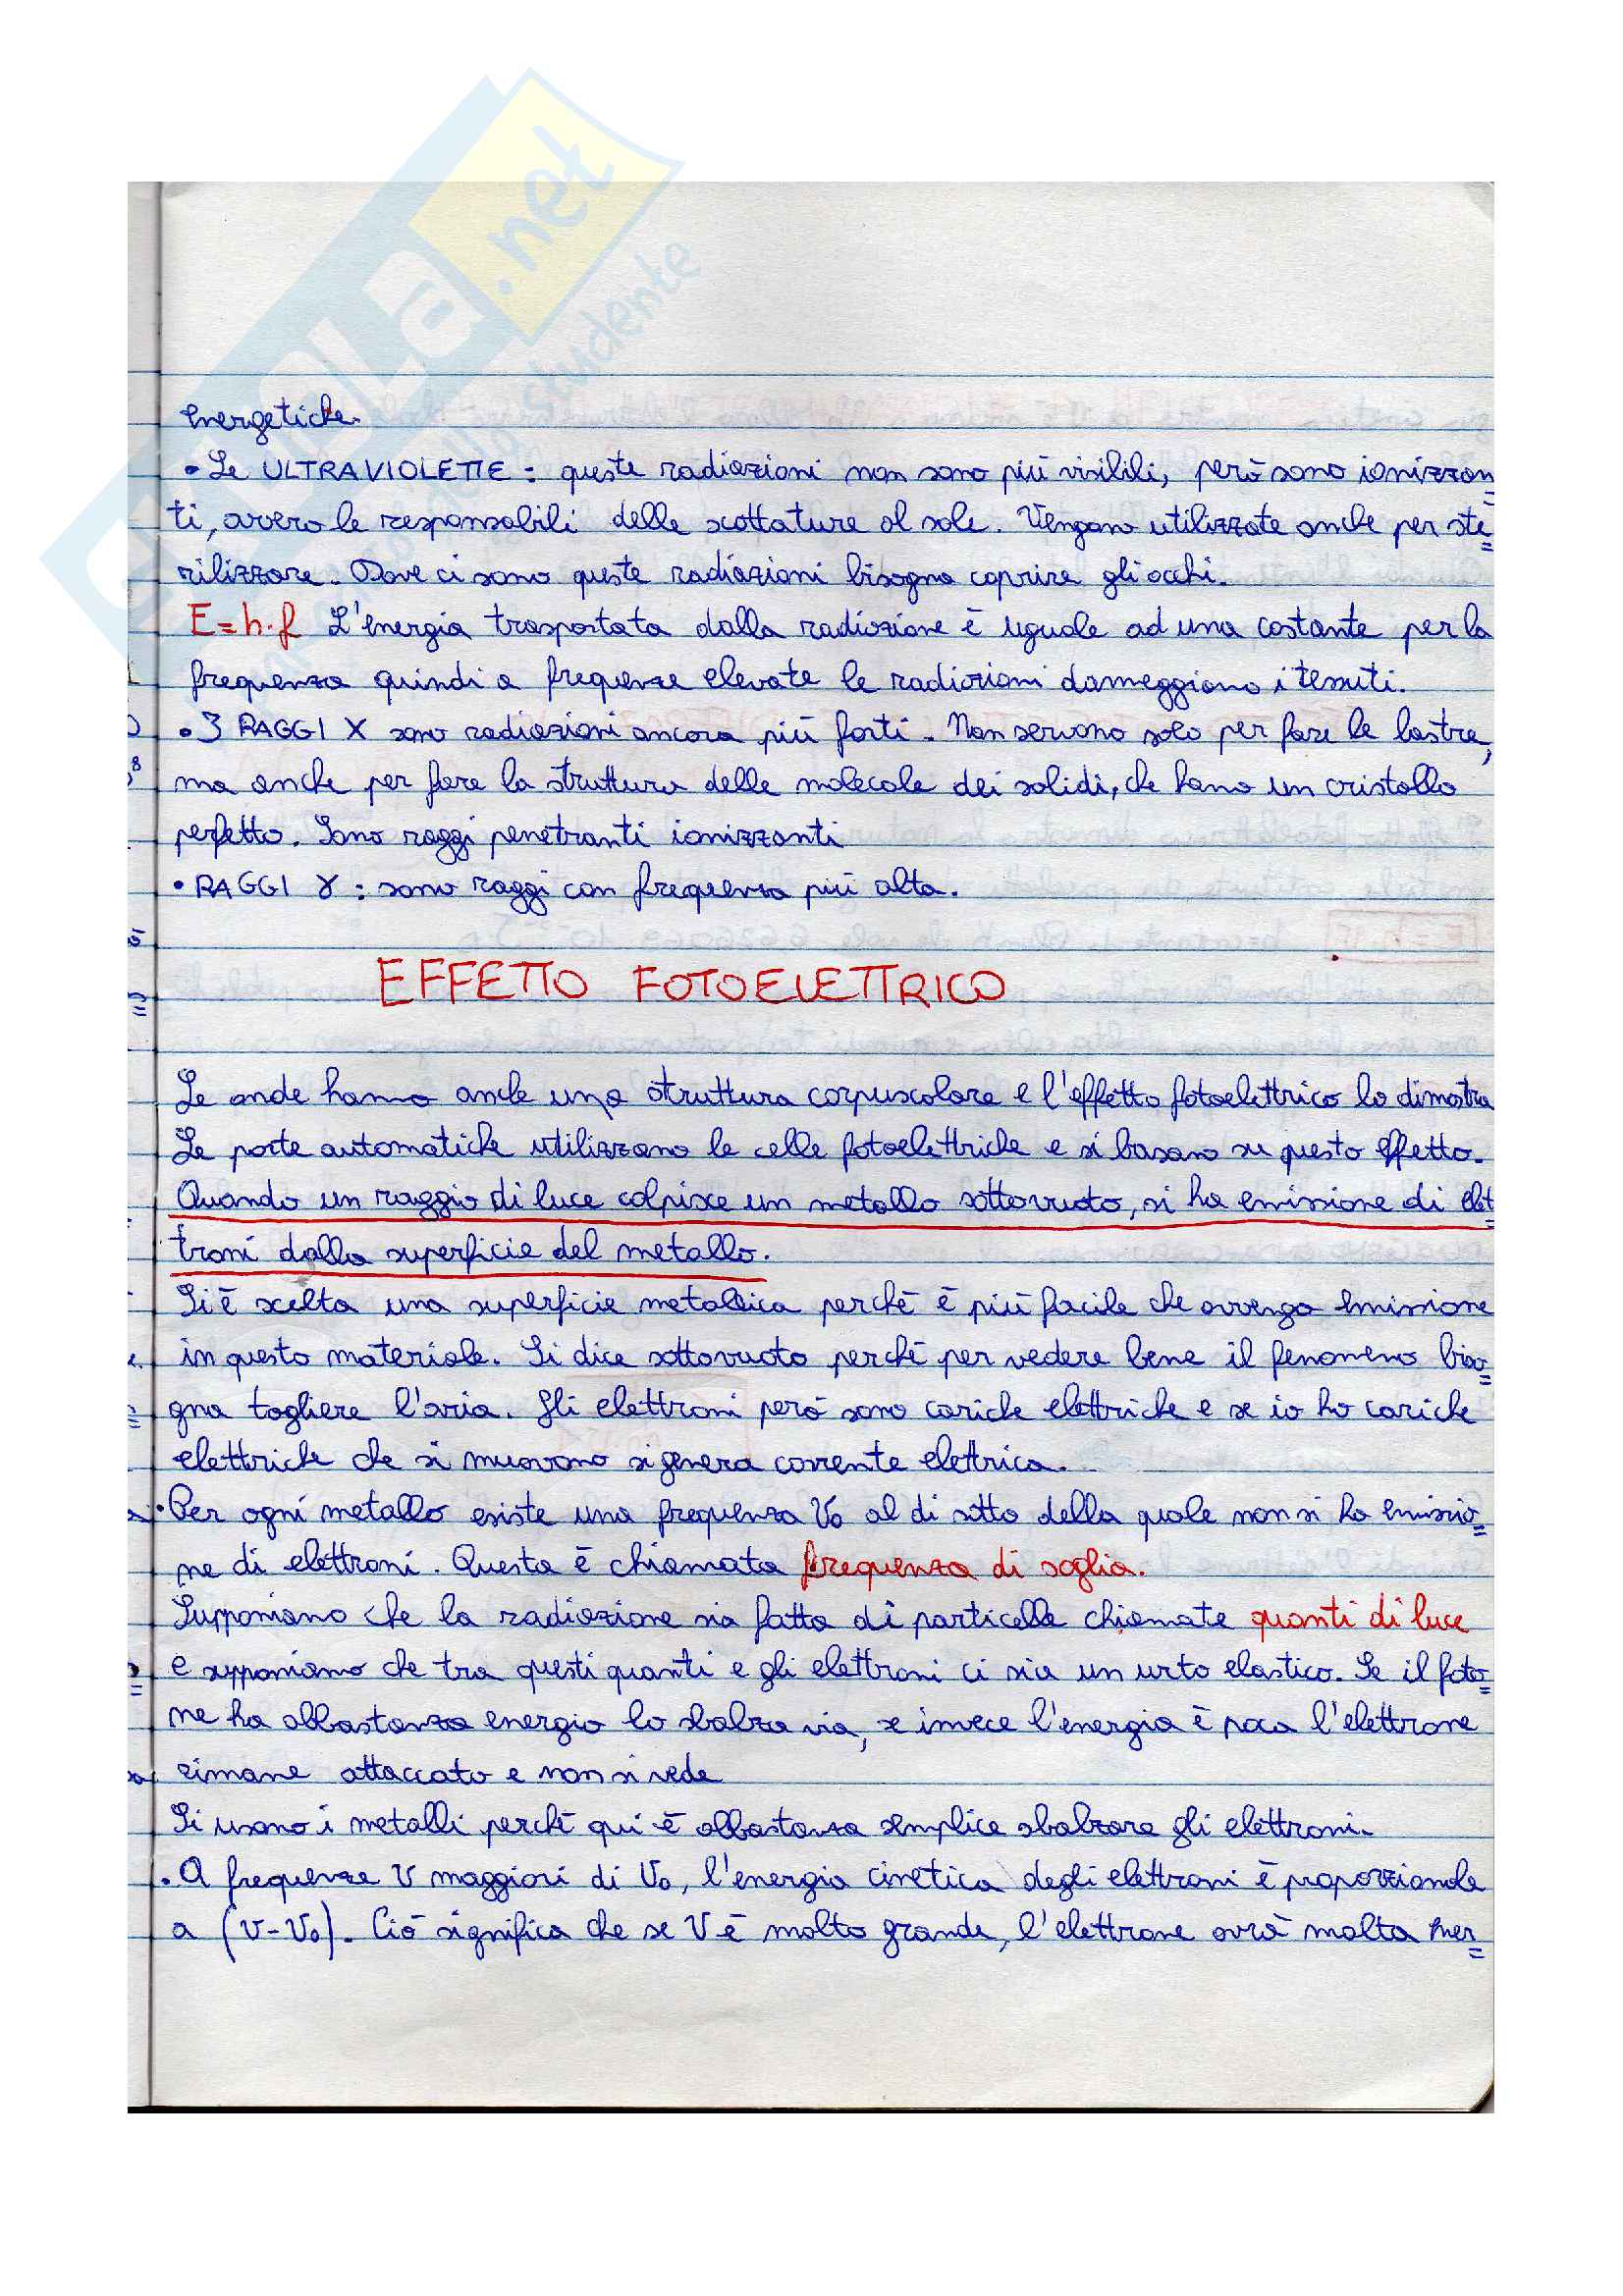 energetiche.
• Le ULTRAVIOLETTE : queste radiazioni non sono più visibili, però sono ionizzan=
ti, ovvero le responsabili delle scottature al sole. Vengono utilizzate anche per ste=
rilizzare. Dove ci sono queste radiazioni bisogna coprire gli occhi.
E=h·f L'energia trasportata dalla radiazione è uguale ad una costante per la
frequenza quindi a frequenze elevate le radiazioni danneggiano i tessuti.
• I RAGGI X sono radiazioni ancora più forti. Non servono solo per fare le lastre,
ma anche per fare la struttura delle molecole dei solidi, che hano un cristallo
perfetto. Sono raggi penetranti ionizzanti
• RAGGI γ : sono raggi con frequenza più alta.
EFFETTO FOTOELETTRICO
Le onde hanno anche una struttura corpuscolare e l'effetto fotoelettrico lo dimostra
Le porte automatiche utilizzano le celle fotoelettriche e si basano su questo effetto.
Quando un raggio di luce colpisce un metallo sottovuoto, si ha emissione di elet=
troni dalla superficie del metallo.
Si è scelta una superficie metallica perché è più facile che avvenga emissione
in questo materiale. Si dice sottovuoto perché per vedere bene il fenomeno biso=
gna togliere l'aria. Gli elettroni però sono cariche elettriche e se io ho cariche
elettriche che si muovono si genera corrente elettrica.
• Per ogni metallo esiste una frequenza ν₀ al di sotto della quale non si ha emissio=
ne di elettroni. Questa è chiamata frequenza di soglia.
Supponiamo che la radiazione sia fatta di particelle chiamate quanti di luce
e supponiamo che tra questi quanti e gli elettroni ci sia un urto elastico. Se il foto=
ne ha abbastanza energia lo sbalza via, se invece l'energia è poca l'elettrone
rimane attaccato e non si vede
Si usano i metalli perché qui è abbastanza semplice sbalzare gli elettroni.
• A frequenze ν maggiori di ν₀, l'energia cinetica degli elettroni è proporzionale
a (ν-ν₀). Ciò significa che se ν è molto grande, l'elettrone avrà molta ener=
.net